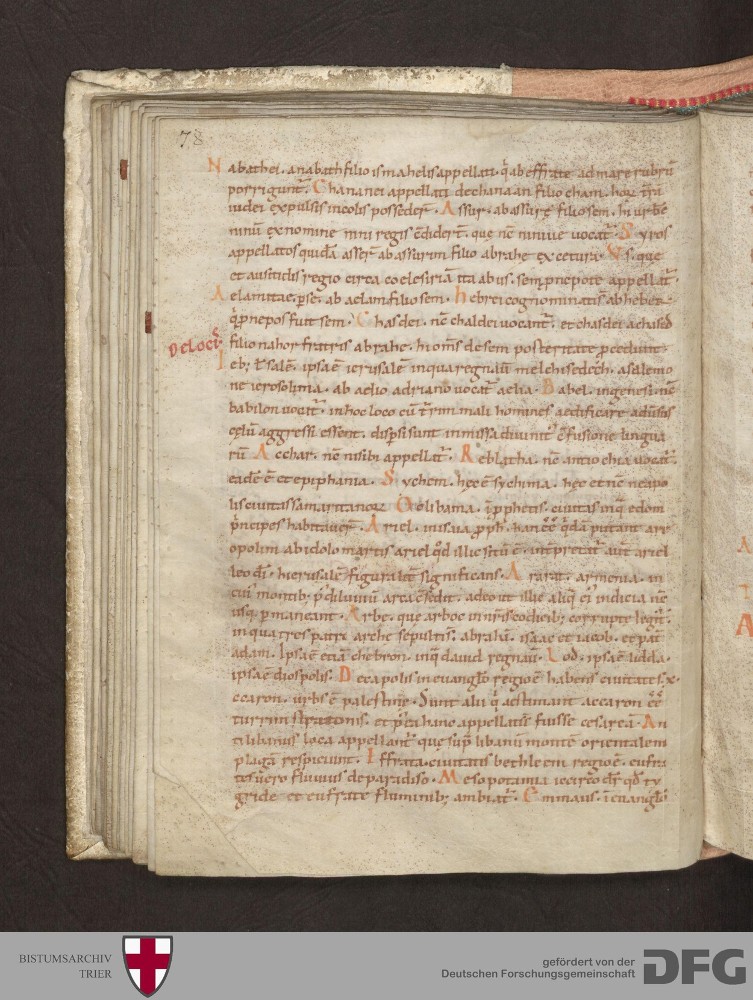 78
N abathei. a nabath filio ismahelis appellati. q̇ ab effrate ad mare rubrū
porrigunt᷑. Chananei appellati de chanaan filio cham. hoꝝ t̄rā
iudei expulsis incolis possederᷓ. Assur. ab assurę filio sem. hi urbē
ninū ex nomine nini regis c̄diderᷓ. quę nc̄ niniue vocat᷑. Syros
appellatos quidā asser᷑ ab assurim filio abrahę ex cetura. Vs. que
et ausitidis regio circa coelesiriā ita ab us. sem pnepote appellat᷑.
Aelamitae. pse. ab aelam filio sem. hebrei cognominati s̄ ab heber
q̇ pnepos fuit sem. Chasdei. nc̄ chaldei vocant᷑. et chasdei a chased
De locis
filio nahor fratris abrahe. hi om̄s de sem posteritate p̄cedunt.
Ieb; t̄ salē. ipsa ē ierusalē in qua regnauī melchisedech. a salemo
ne ierosolima. ab aelio adriano vocat᷑ aelia. Babel. in genesi. nc̄
babilon vocat᷑. in hoc loco cū t̄rim mali homines aedificare adūsus
cęlū aggressi essent. dispersi sunt in missa diuinit᷑ c̄fusione lingua
rū. Acchar. nc̄ nisibi appellat᷑. Reblatha. nc̄ antiochia vocat᷑.
eadē ē et epiphania. Sychem. hęc ē sychima. hęc et nc̄ neapo
lis ciuitas samaritanoꝝ Oolibama. ī p̄phetis. ciuitas in q̄ edom
p̄ncipes habitauerᷓ. Ariel. in isaia p̄ph. hanc ēē q̇dā putant are
opolim ab idolo martis ariel qd̄ illic sitū ē. int̄pretat᷑ aut̄ ariel
leo dī. hierusalē figuralit̄ significans. Ararat. armenia. in
cui᷒ montib; p᷒ diluuiū arca c̄sedit. adeo ut illic aliq̄ ei᷒ indicia nc̄
usq; pmaneant. Arbe. que arboc in nr̄is codicib; corrupte legit᷑.
in qua tres patri arche sepulti s̄. abrahā. isaac et iacob. et pat᷑
adam. Ipsa ē etiā chebron. in q̄ dauid regnauī. Lod. ipsa ē lidda.
ipsa ē diospolis. Decapolis in euanglo regio ē habens ciuitates. x.
ccaron. urbs ē palestinę. Sunt alii q̇ aestimant accaron ēē
turrim stratonis. et p᷒ea hanc appellatā fuisse cesareā. An
tilibanus loca appellant᷑ que sup̄ libanū montē orientalem
plagā respiciunt. Effrata. ciuitatis bethleem regio ē. eufra
tes ūero fluuius de paradiso. Mesopotamia iccirco dr̄ qd̄ ty
gride et eufrate fluminib; ambiat᷑. Emmaus. ī euanglo
BISTUMSARCHIV
TRIER
gefördert von der
Deutschen Forschungsgemeinschaft
DFG